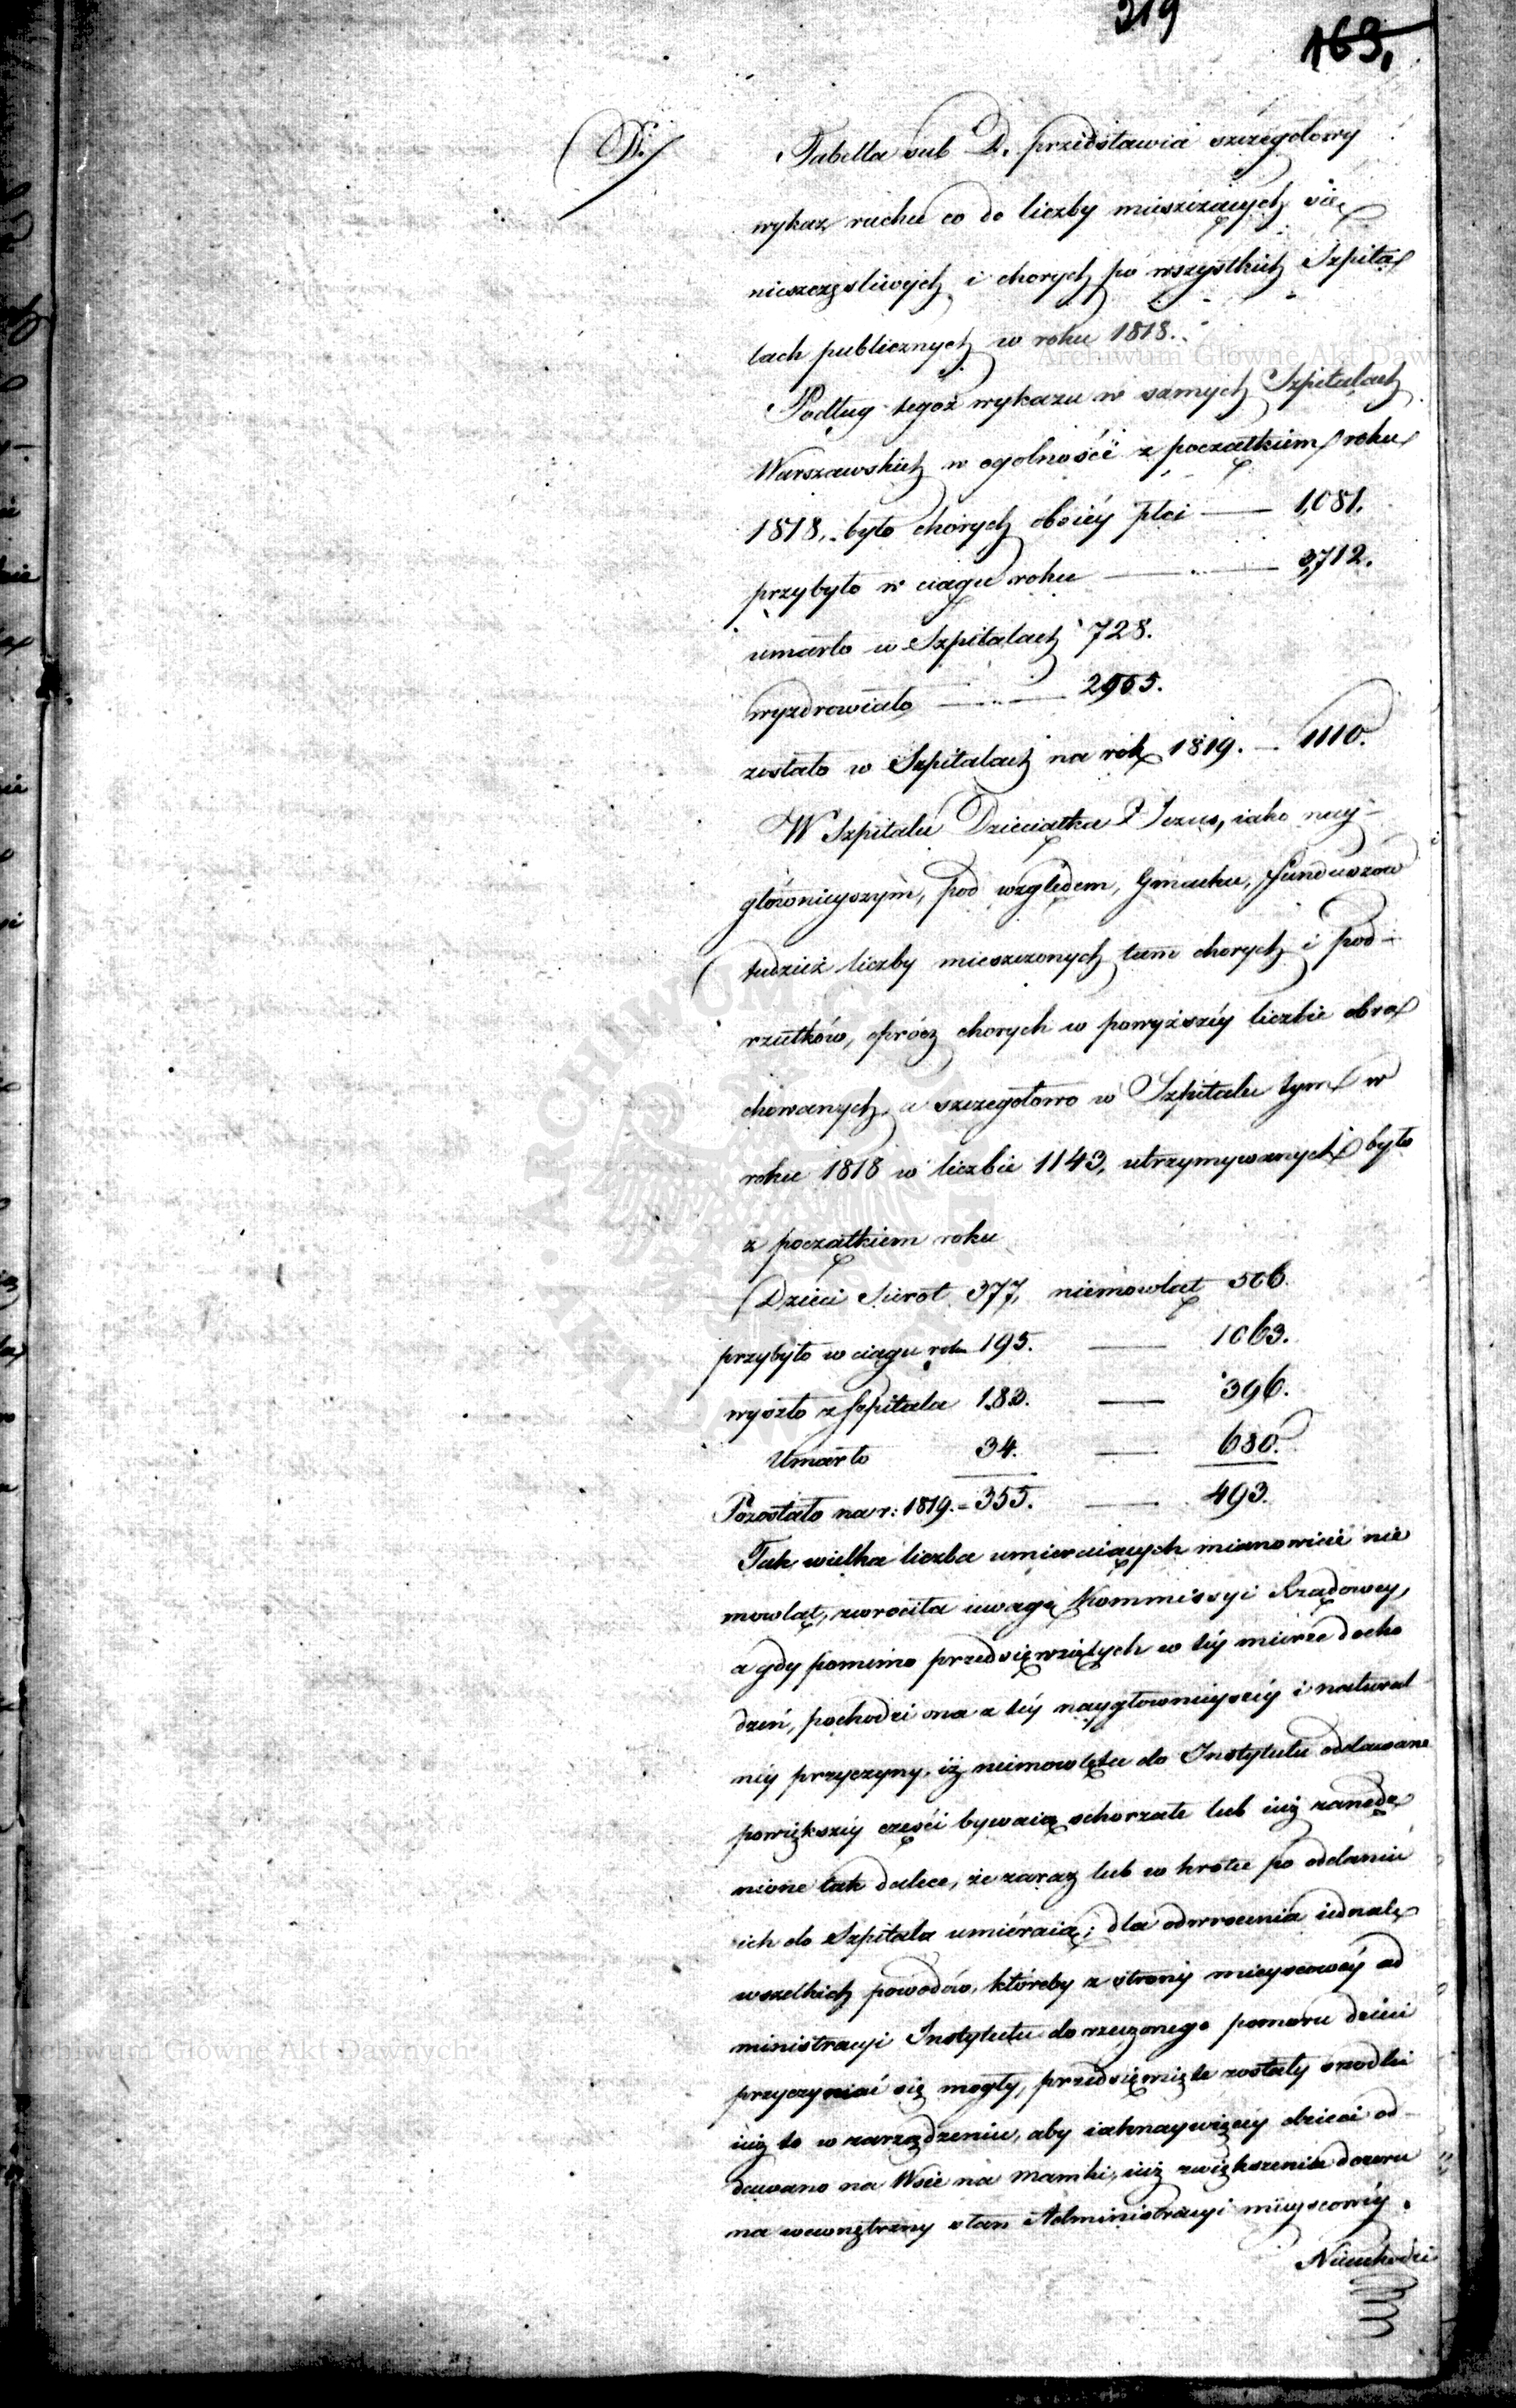 319
163.
D.
Tabella sub D. przedstawia szczegolowy
wykaz ruchu co do liczby mieszczących się
nieszczęsliwych i chorych po wszystkich Szpita
lach publicznych w roku 1818.
Podług tegoż wykazu w samych Szpitalach
Warszawskich w ogolności z początkiem roku
1818, było chorych oboiéy płci — 1,081.
przybyło w ciągu roku — 3,712.
umarło w Szpitalach 728.
wyzdrowiało — 2955.
zostało w Szpitalach na rok 1819. — 1110.
W Szpitalu Dzieciątka P Jezus, iako nay-
głównieyszym, pod względem, Gmachu, Funduszów
tudzież liczby mieszczonych tam chorych i pod-
rzutków, oprócz chorych w powyższéy liczbie obra
chowanych, a szczegołowo w Szpitalu tym w
roku 1818 w liczbie 1143, utrzymywanych było
z początkiem roku
Dzieci Sierot 377, niemowląt 506.
przybyło w ciągu roku 195. — 1063.
wyszło z szpitala 183. — 396.
Umarło 34. — 680.
Pozostało na r: 1819. - 355. — 493.
Tak wielka liczba umieraiących mianowicie nie
mowląt, zwrociła uwagę Kommissyi Rządowey,
a gdy pomimo przedsięwziętych w téy mierze docho
dzeń, pochodzi ona z téy naygłownieyszéy i natural
néy przyczyny, iż niemowlęta do Instytutu oddawane
powiększéy części bywaią schorzałe lub iuż zanędz
nione tak dalece, że zaraz lub w krotce po oddaniu
ich do Szpitala umiéraią; dla odwrocenia iednak
wszelkich powodów, któreby z strony mieyscowéy ad
ministracyi Instytutu do rzeczonego pomoru dzieci
przyczyniać się mogły, przedsięwzięte zostały srodki
iuż to w zarządzeniu, aby iaknaywięcéy dzieci od-
dawano na Wsie na mamki, iuż zwiększenia dozoru
na wewnętrzny stan Administracyi mieyscowéy.
Nieuchodzi
Archiwum Główne Akt Dawnych
ARCHIWUM GŁÓWNE AKT DAWNYCH
Archiwum Główne Akt Dawnych